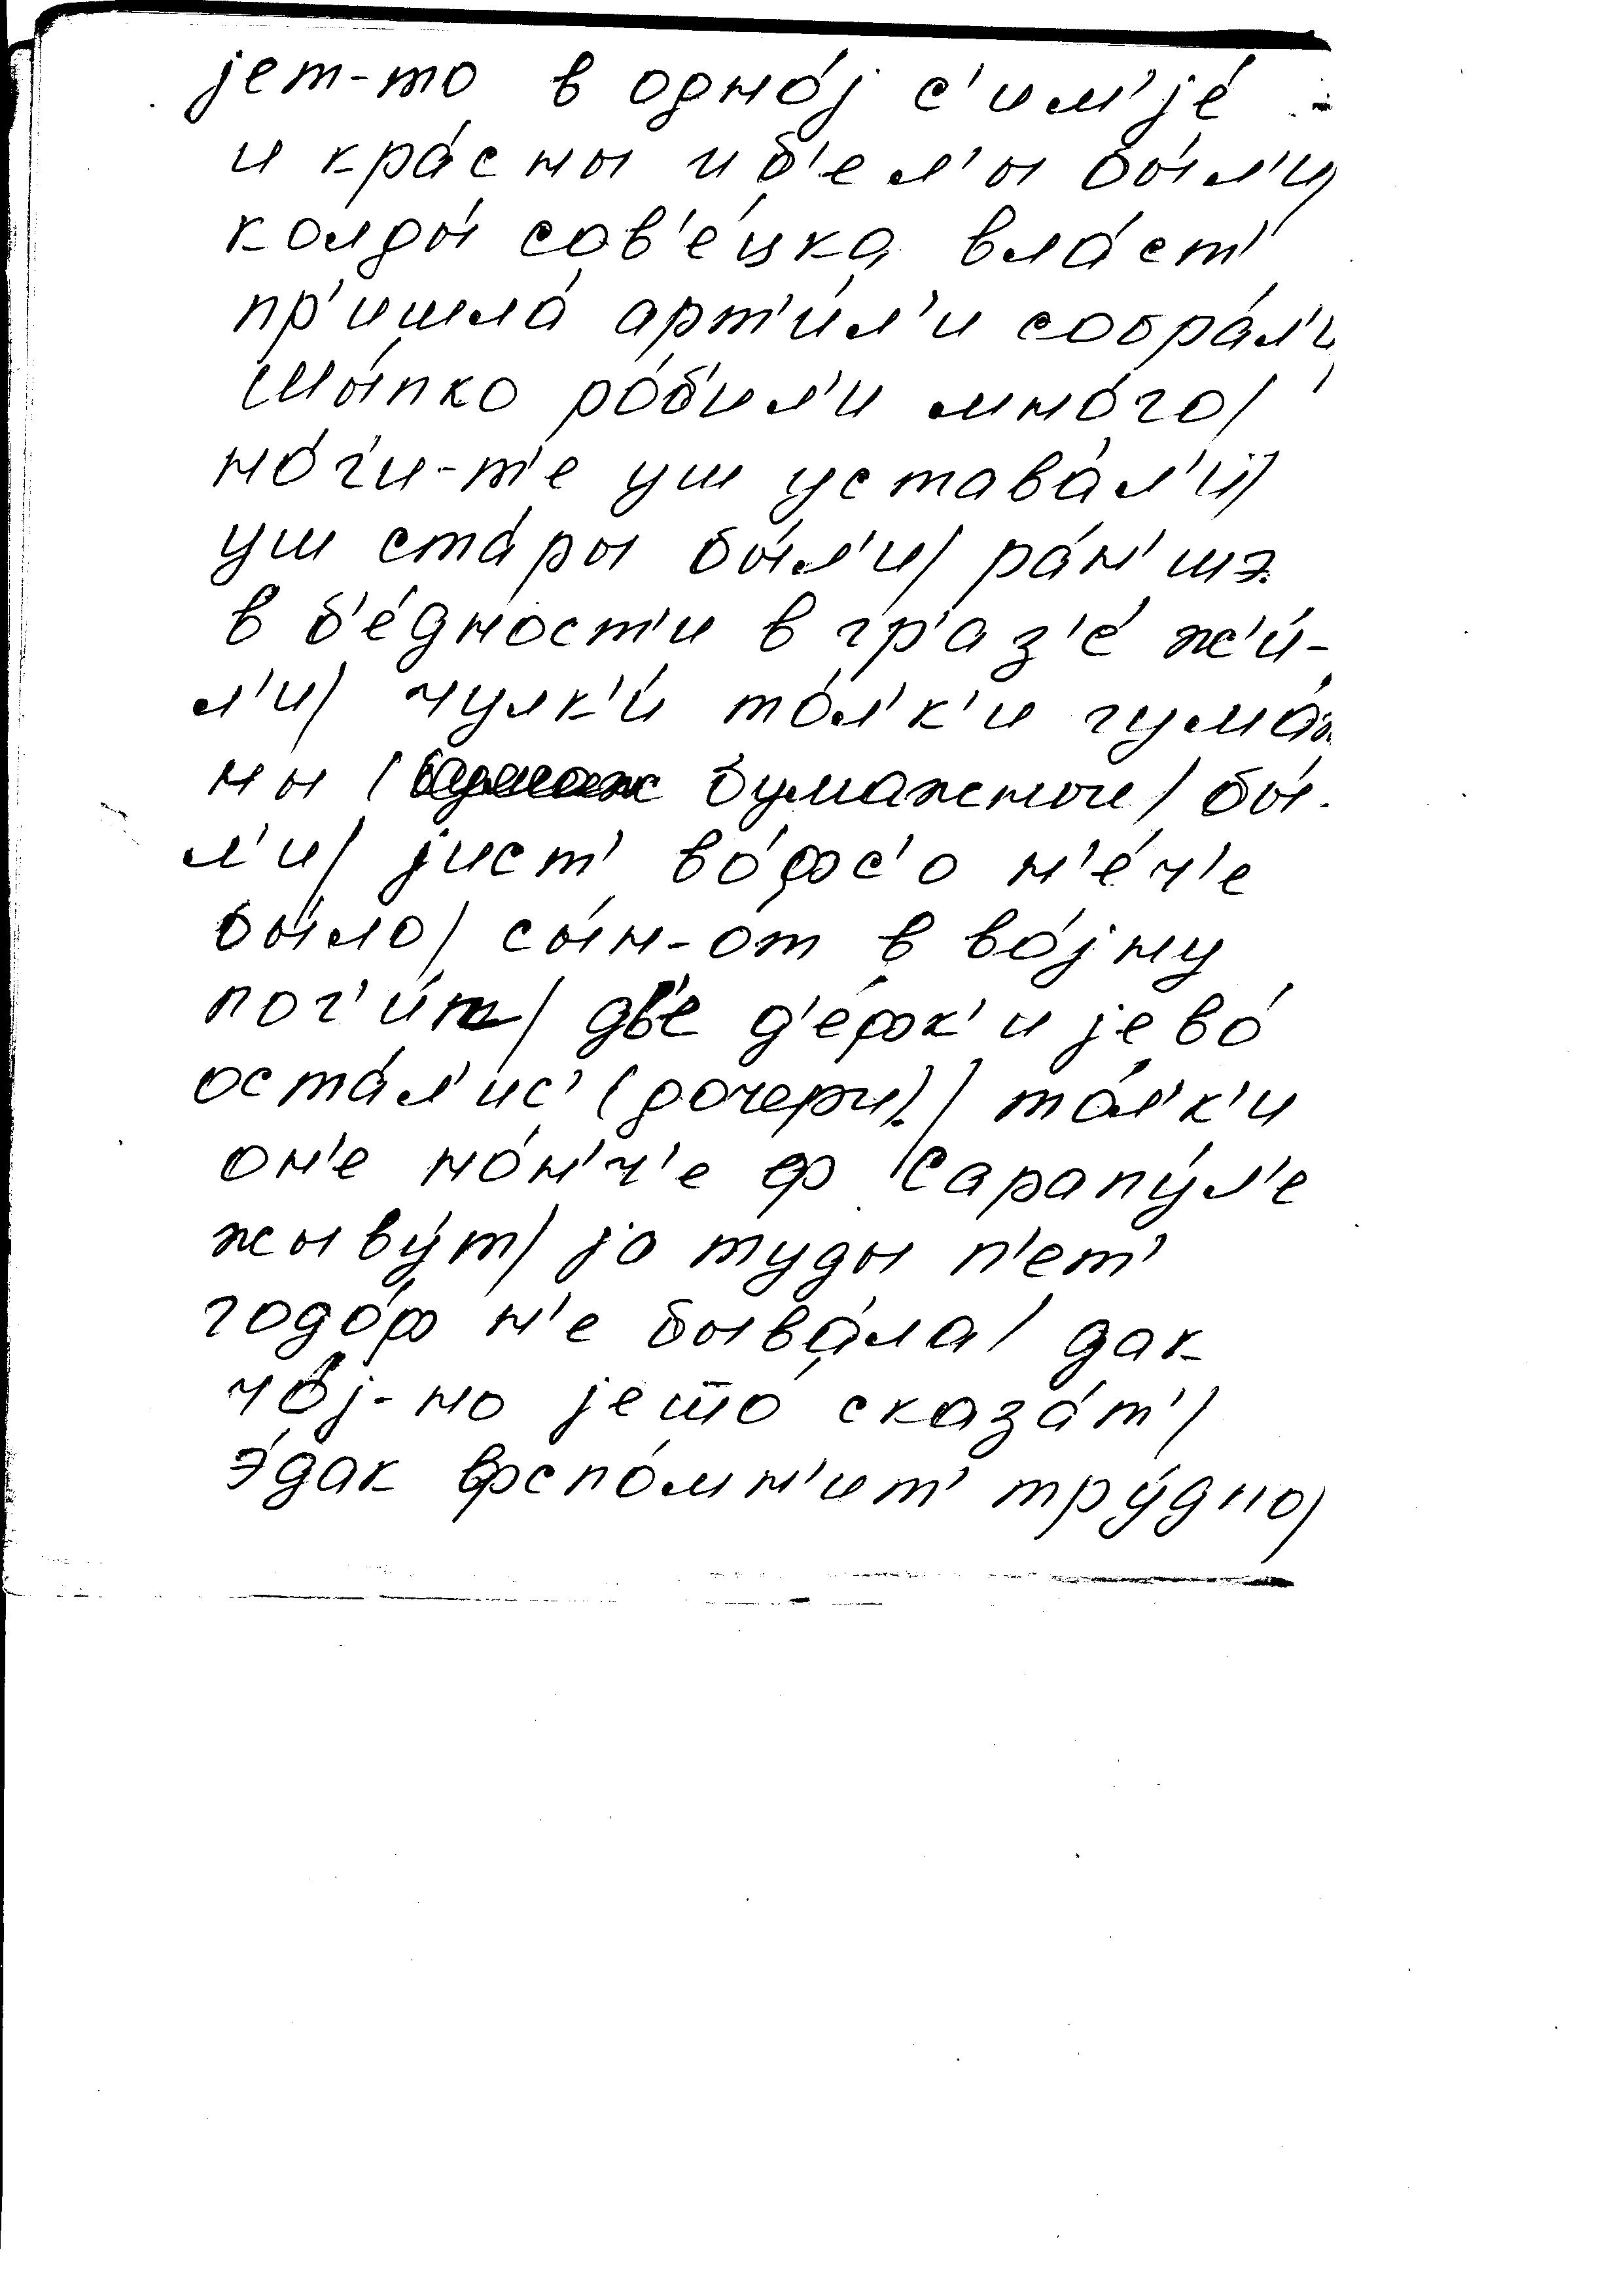 jет-то в одно́j с'им'jе́
и кра́сны и б'ел'ы бы́л'и/
колды́ сов'е́цка вла́ст'
пр'ишла́ арт'и́л'и собра́л'и
шы́пко ро́б'ил'и мно́го/
но́г'и-т'е уш устава́л'и/
уш ста́ры бы́л'и/ ра́н'шэ
в б'е́дност'и в гр'аз'е́ ж'и́-
л'и/ чулк'и́ то́л'к'и гума́ж
ны (бумажные/ бы́-
л'и/ jист' во́фс'о н'е́ч'е
бы́ло/ сы́н-от в во́jну
пог'и́п/ дв'е д'е́фк'и jево́
оста́л'ис' (дочери)/ то́л'к'и
он'е но́н'ч'е ф Сарапу́л'е
жыву́т/ jа туды п'ет'
годо́ф н'е быва́ла/ дак
чо́j-но jешо́ сказа́т'/
э́дак фспо́мн'ит' тру́дно/